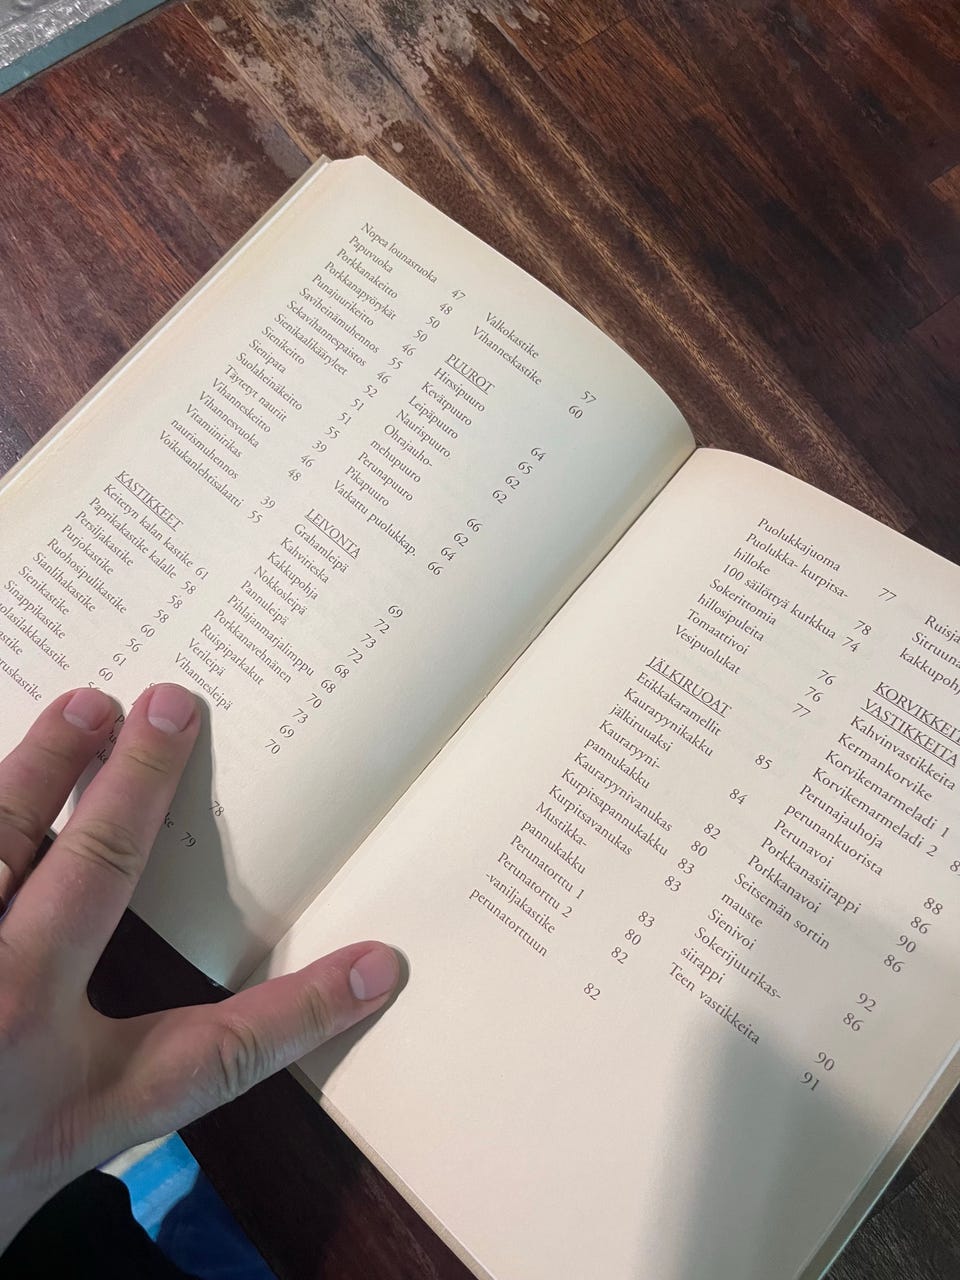 Nopea lounasruoka 47
Papuvuoka 48
Porkkanakeitto 50
Porkkanapyörykät 50
Punajuurikeitto 46
Saviheinämuhennos 55
Sekavihannespaistos 46
Sienikaalikääryleet 52
Sienikeitto 51
Sienipata 51
Suolaheinäkeitto 55
Täytetyt nauriit 39
Vihanneskeitto 46
Vihannesvuoka 48
Vitamiinirikas
naurismuhennos 39
Voikukanlehtisalaatti 55
KASTIKKEET
Keitetyn kalan kastike 61
Paprikakastike kalalle 58
Persiljakastike 58
Purjokastike 58
Ruohosipulikastike 60
Sianlihakastike 56
Sienikastike 61
Sinappikastike 60
78
79
Valkokastike 57
Vihanneskastike 60
PUUROT
Hirssipuuro 64
Kevätpuuro 65
Leipäpuuro 62
Naurispuuro 62
Ohrajauho-
mehupuuro 66
Perunapuuro 62
Pikapuuro 64
Vatkattu puolukkap. 66
LEIVONTA
Grahamleipä 69
Kahvirieska 72
Kakkupohja 73
Nokkosleipä 72
Pannuleipä 68
Pihlajanmarjalimppu 68
Porkkanavehnänen 70
Ruispiparkakut 73
Verileipä 69
Vihannesleipä 70
Puolukkajuoma 77
Puolukka- kurpitsa-
hilloke 78
100 säilöttyä kurkkua 74
Sokerittomia
hillosipuleita 76
Tomaattivoi 76
Vesipuolukat 77
JÄLKIRUOAT
Etikkakaramellit 85
Kauraryynikakku
jälkiruuaksi 84
Kauraryyni-
pannukakku 82
Kauraryynivanukas 80
Kurpitsapannukakku 83
Kurpitsavanukas 83
Mustikka-
pannukakku 83
Perunatorttu 1 80
Perunatorttu 2 82
-vaniljakastike
perunatorttuun 82
Sitruuna
kakkupohj
KORVIKKEIT
VASTIKKEITA
Kahvinvastikkeita
Kermankorvike
Korvikemarmeladi 1
Korvikemarmeladi 2
Perunajauhoja
perunankuorista 88
Perunavoi 86
Porkkanasiirappi 90
Porkkanavoi 86
Seitsemän sortin
mauste 92
Sienivoi 86
Sokerijuurikas-
siirappi 90
Teen vastikkeita 91